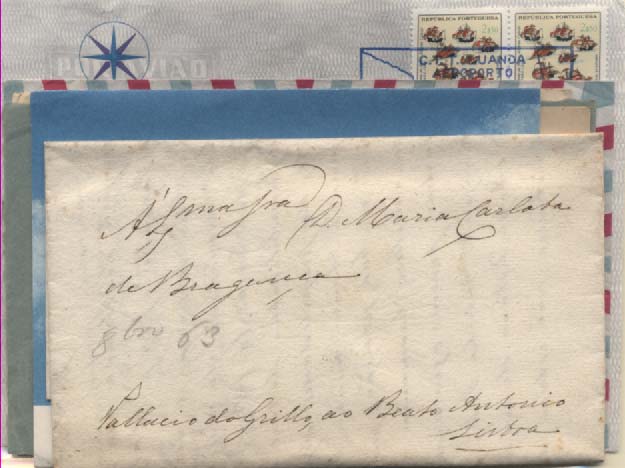 REPÚBLICA PORTUGUESA REPÚBLICA PORTUGUESA
2$50 2$50
C.T.T. LUANDA
AEROPORTO
POR AVIÃO
Á Illma Snra D. Maria Carlota
de Bragança
8bro 63
Pallacio do Grillo, ao Beato Antonio
Lisboa